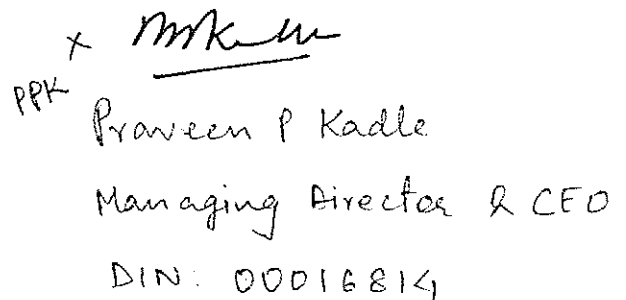 PPK
Praveen P Kadle
Managing Director & CEO
DIN: 00016814